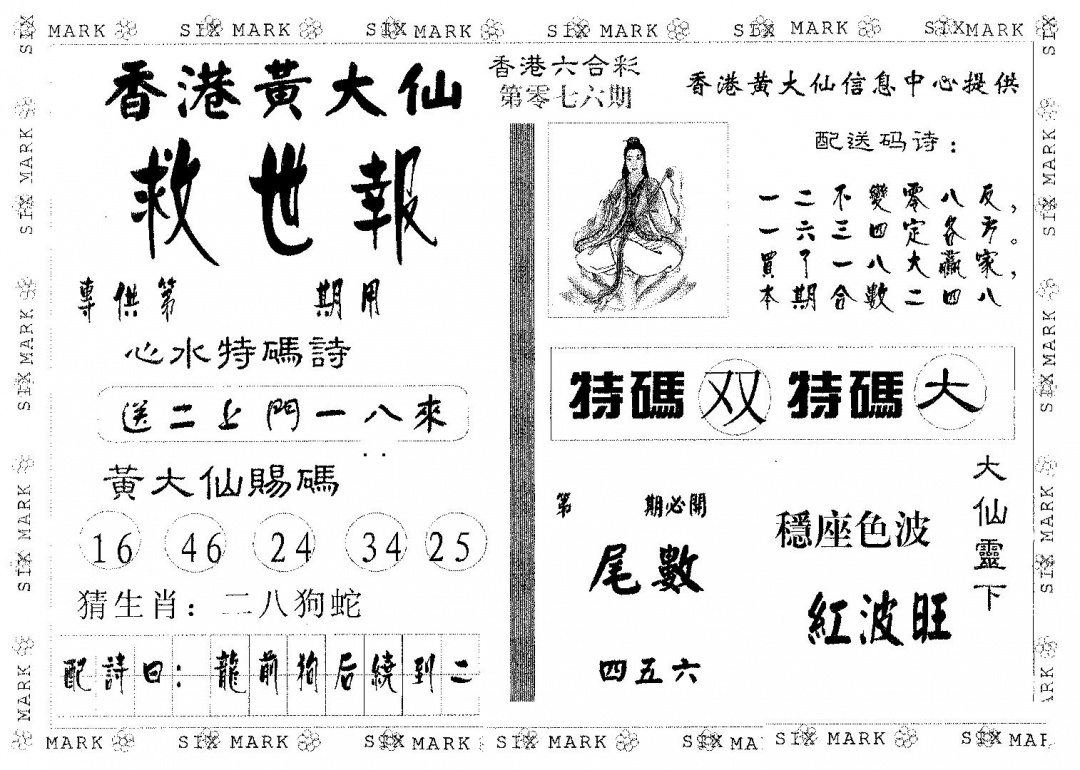 SIX MARK SIX MARK SIX MARK SIX MARK SIX MARK SIX MARK
香港黃大仙
救世報
專供第 期用
心水特碼詩
送二上門一八來
黃大仙賜碼
16 46 24 34 25
猜生肖：二八狗蛇
配詩曰：龍前狗后繞到二
香港六合彩
第零七六期
香港黄大仙信息中心提供
配送码诗：
一二不變零八反，
一六三四定各方。
買了一八大贏家，
本期合數二四八
特碼 双 特碼 大
第 期必開
尾數
四五六
穩座色波
紅波旺
大仙靈下
SIX MARK SIX MARK SIX MARK SIX MARK
SIX MARK SIX MARK SIX MARK SIX MARK
MARK SIX MARK SIX MARK SIX MARK SIX MA SIX MARK SIX MAR